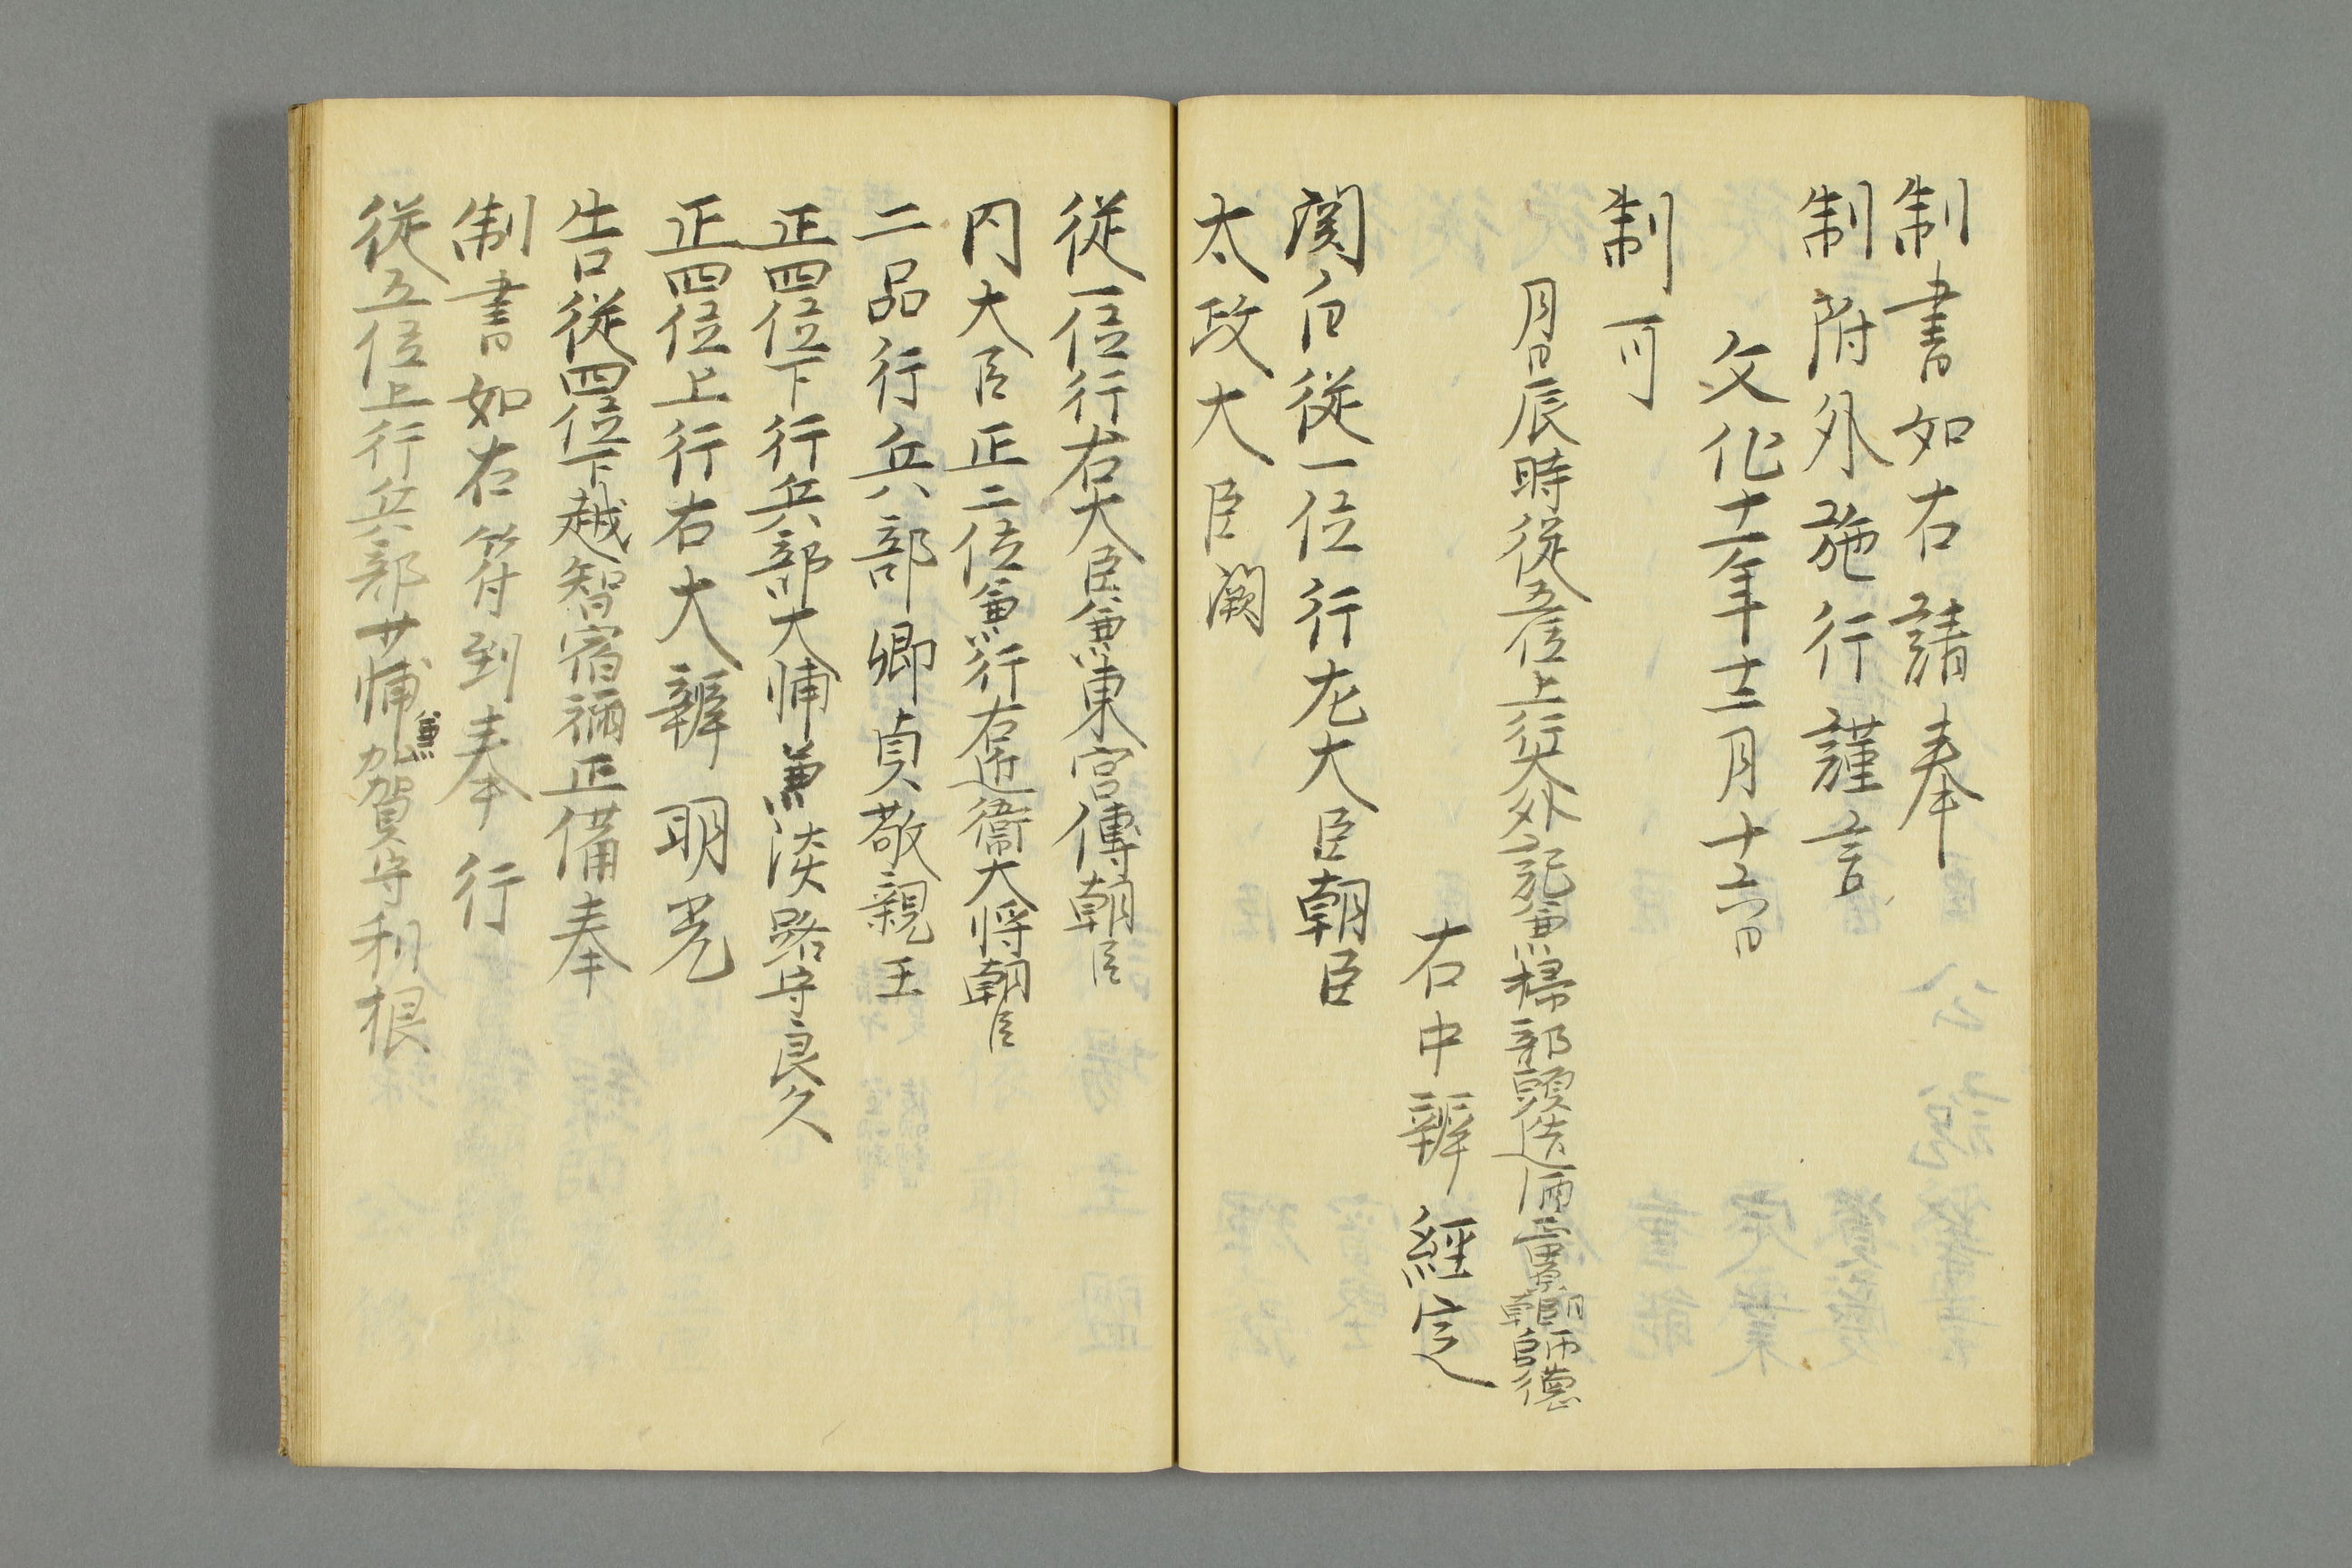 制書如右請奉
制附外施行謹言
文化十一年十二月十六日
制可
月日辰時従五位上行大外記兼掃部頭造酒正中原朝臣師徳
右中辨経定
関白従一位行左大臣朝臣
太政大臣闕
従一位行右大臣兼東宮傅朝臣
内大臣正二位兼行右近衛大将朝臣
二品行兵部卿貞敬親王
正四位下行兵部大輔兼淡路守良久
正四位上行右大辨明光
告従四位下越智宿祢正備奉
制書如右符到奉行
従五位上行兵部少輔兼加賀守利根